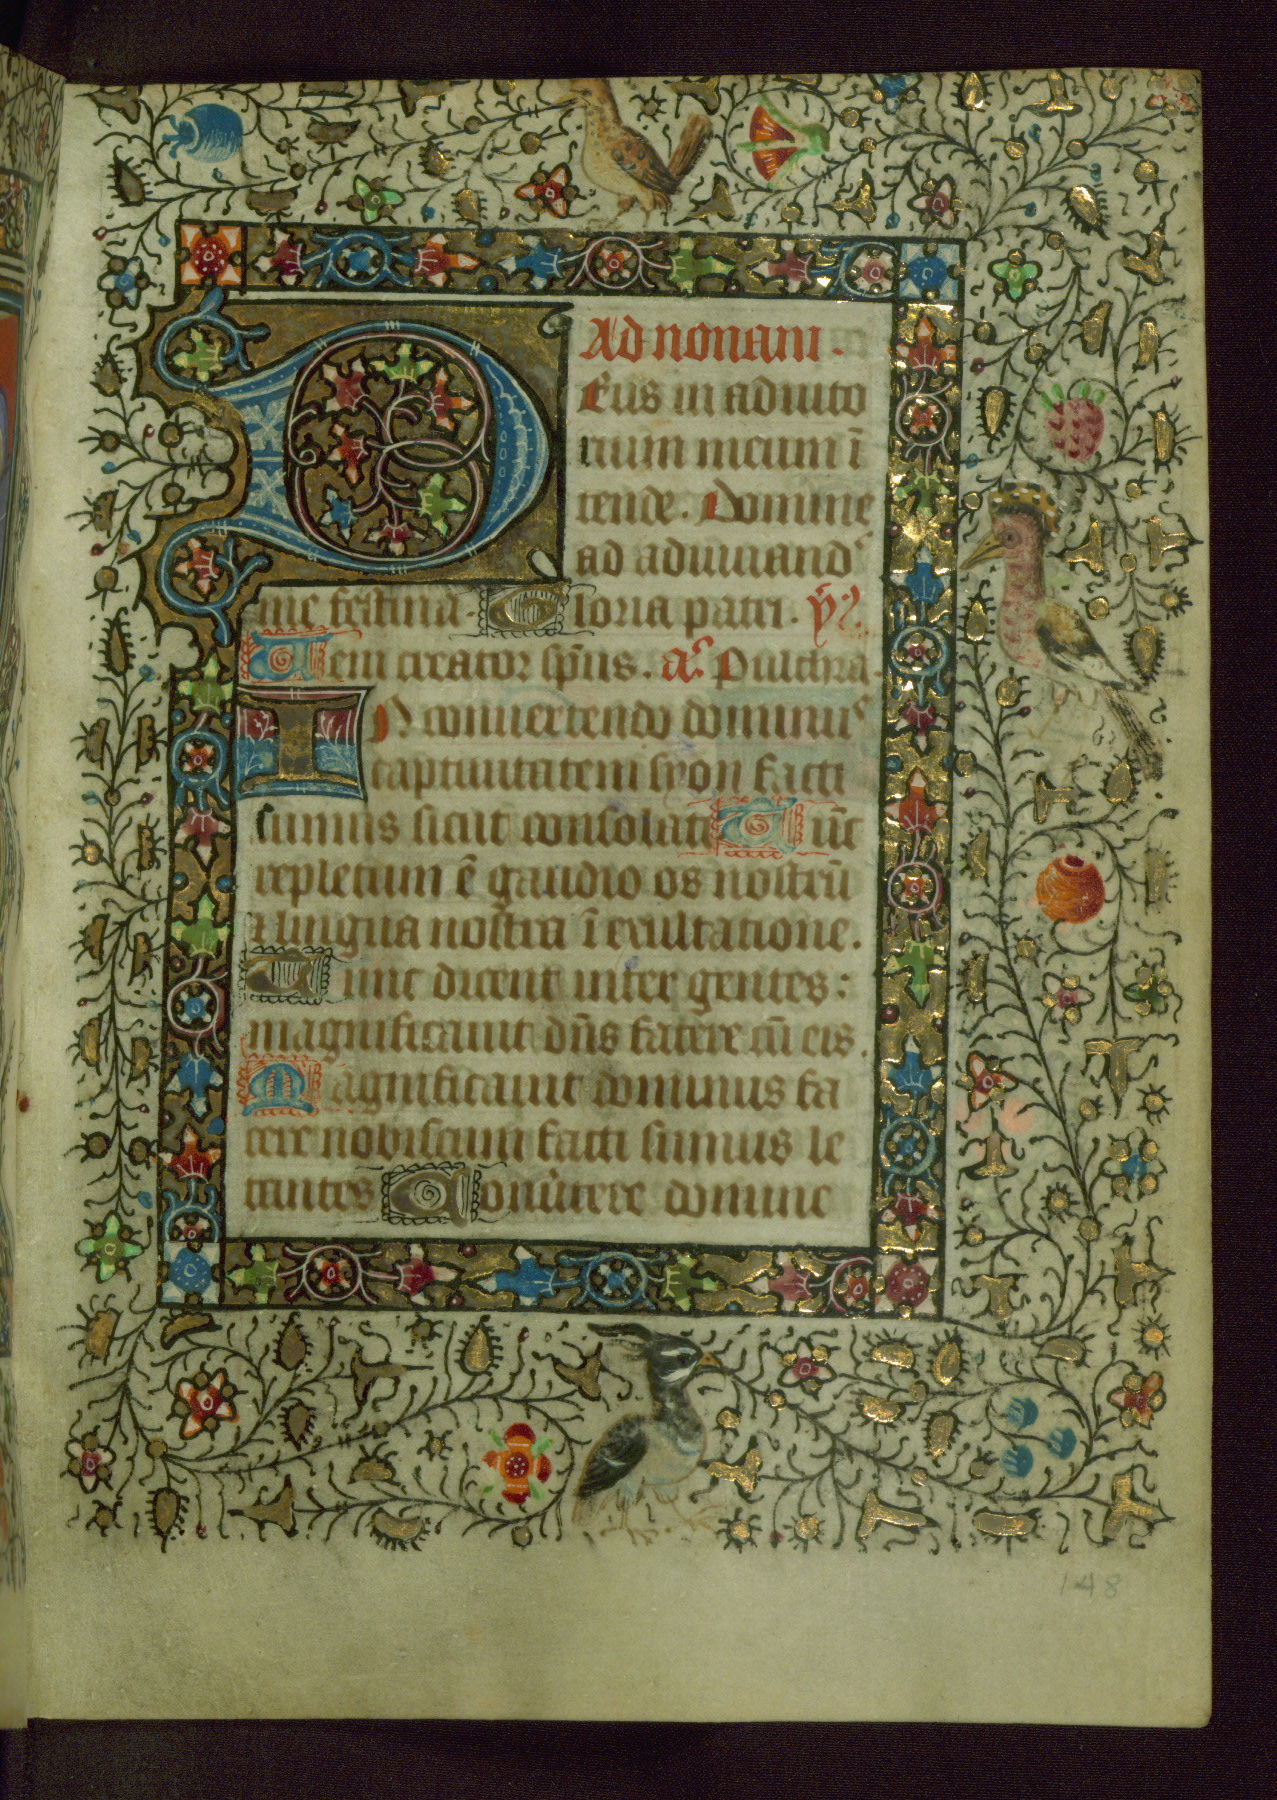 Ad nonam.
DEus in adiuto
rium meum ī
tende. Domine
ad adiuuand᷒
me festina. Gloria patri. ẏ᷒.
Veni creator sp̄us. a᷒ Pulchra.
IN conuertendo dominus
captiuitatem syon facti
sumus sicut consolati Tūc
repletum ē gaudio os nostrū
⁊ lingua nostra ī exultatione.
Tunc dicent inter gentes:
magnificauit dn̄s facere cū eis.
Magnificauit dominus fa
cere nobiscum facti sumus le
tantes Conūtere domine
148